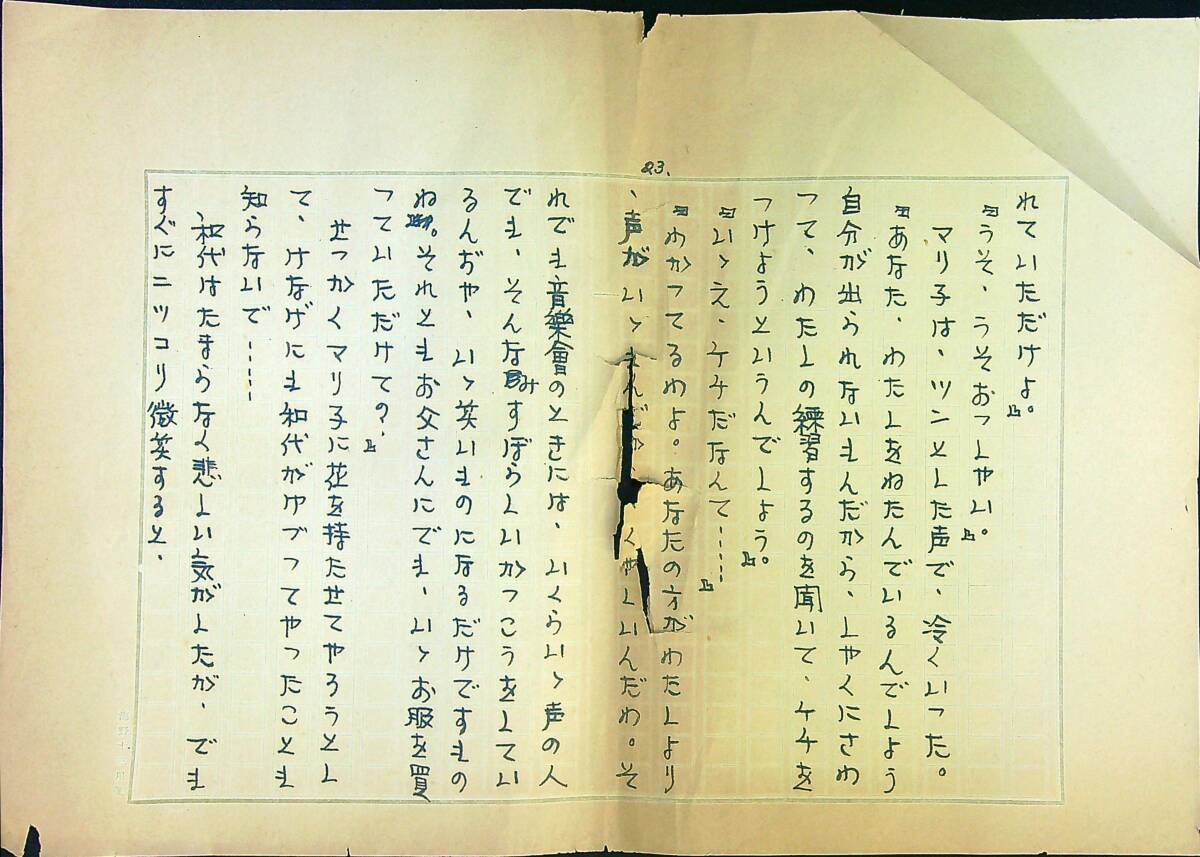 23.
れていただけよ。」
「うそ、うそおつしやい。」
マリ子は、ツンとした声で、冷くいつた。
「あなた、わたしをねたんでいるんでしよう
自分が出られないもんだから、しやくにさわ
つて、わたしの練習するのを聞いて、ケチを
つけようというんでしよう。」
「いゝえ、ケチだなんて……」
「わかつてるわよ。あなたの方がわたしより
、声がいゝもんだ くやしいんだわ。そ
れでも音樂會のときには、いくらいゝ声の人
でも、そんなみすぼらしいかつこうをしてい
るんぢや、いゝ笑いものになるだけですもの
ね。それともお父さんにでも、いゝお服を買
つていただけて?」
せつかくマリ子に花を持たせてやろうとし
て、けなげにも和代がゆづつてやつたことも
知らないで……
和代はたまらなく悲しい気がしたが、でも
すぐにニツコリ微笑すると、